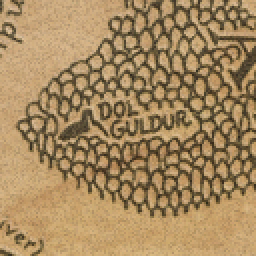 DOL
GULDUR
iver)